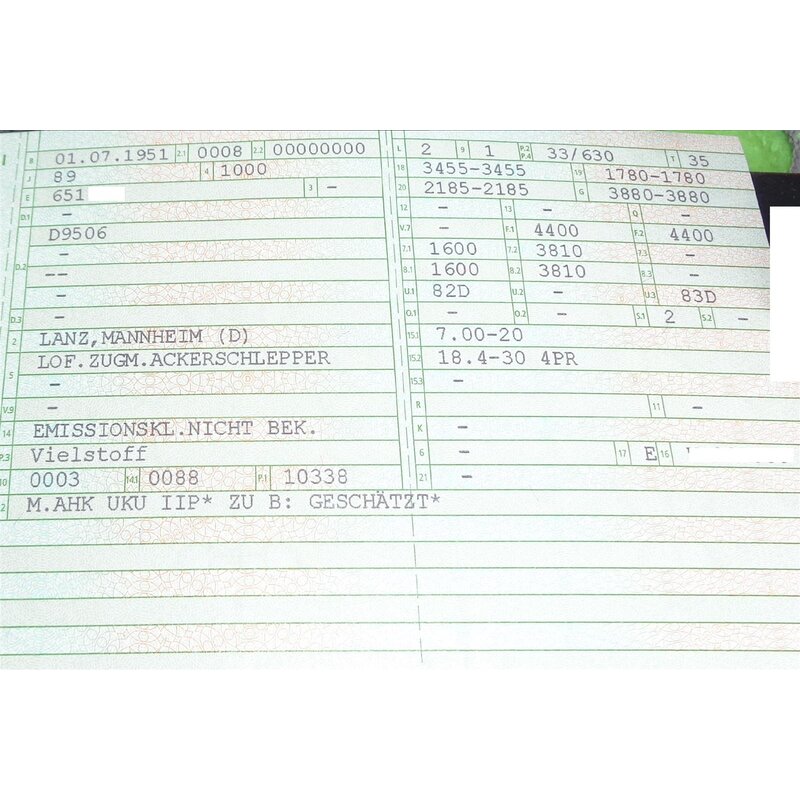 B 01.07.1951 2.1 0008 2.2 00000000
J 89 4 1000
E 651 3 –
D.1 –
D9506
D.2 –
--
–
D.3 –
2 LANZ,MANNHEIM (D)
5 LOF.ZUGM.ACKERSCHLEPPER
–
V.9 –
14 EMISSIONSKL.NICHT BEK.
P.3 Vielstoff
10 0003 14.1 0088 P.1 10338
2 M.AHK UKU IIP* ZU B: GESCHÄTZT*
L 2 9 1 P.2 P.4 33/630 T 35
18 3455-3455 19 1780-1780
20 2185-2185 G 3880-3880
12 – 13 – Q –
V.7 – F.1 4400 F.2 4400
7.1 1600 7.2 3810 7.3 –
8.1 1600 8.2 3810 8.3 –
U.1 82D U.2 – U.3 83D
O.1 – O.2 – S.1 2 S.2 –
15.1 7.00-20
15.2 18.4-30 4PR
15.3 –
R 11 –
K –
6 – 17 E 16
21 –